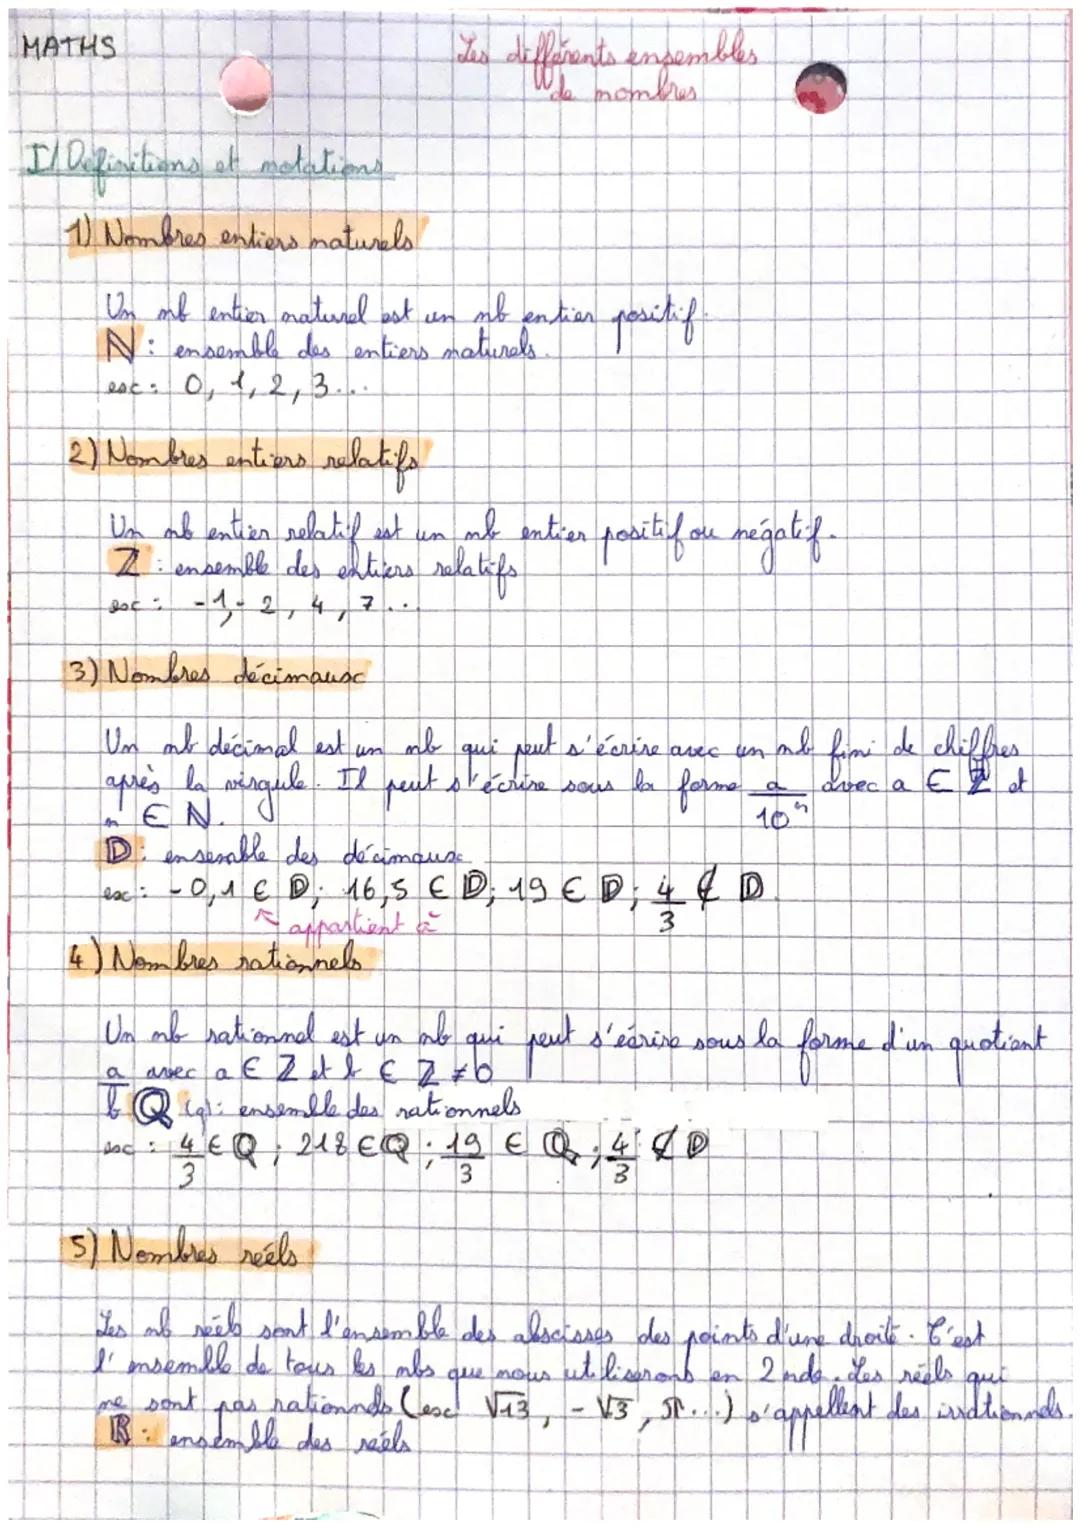 MATHS
Les différents ensembles
de nombres
I/ Définitions et notations
1) Nombres entiers naturels
Un nb entier naturel est un nb entier positif.
ℕ : ensemble des entiers naturels.
ex : 0, 1, 2, 3...
2) Nombres entiers relatifs
Un nb entier relatif est un nb entier positif ou négatif.
ℤ : ensemble des entiers relatifs
ex : -1, -2, 4, 7...
3) Nombres décimaux
Un nb décimal est un nb qui peut s'écrire avec un nb fini de chiffres
après la virgule. Il peut s'écrire sous la forme a/10ⁿ avec a ∈ ℤ et
n ∈ ℕ.
𝔻 : ensemble des décimaux
ex : -0,1 ∈ 𝔻; 16,5 ∈ 𝔻; 19 ∈ 𝔻; 4/3 ∉ 𝔻.
↖ appartient à
4) Nombres rationnels
Un nb rationnel est un nb qui peut s'écrire sous la forme d'un quotient
a/b avec a ∈ ℤ et b ∈ ℤ ≠ 0
ℚ (q) : ensemble des rationnels
ex : 4/3 ∈ ℚ ; 218 ∈ ℚ ; 19/3 ∈ ℚ ; 4/3 ∉ 𝔻
5) Nombres réels
Les nb réels sont l'ensemble des abscisses des points d'une droite. C'est
l'ensemble de tous les nbs que nous utiliserons en 2nde. Les réels qui
ne sont pas rationnels (ex √13, -√3, π...) s'appellent des irrationnels.
ℝ : ensemble des réels